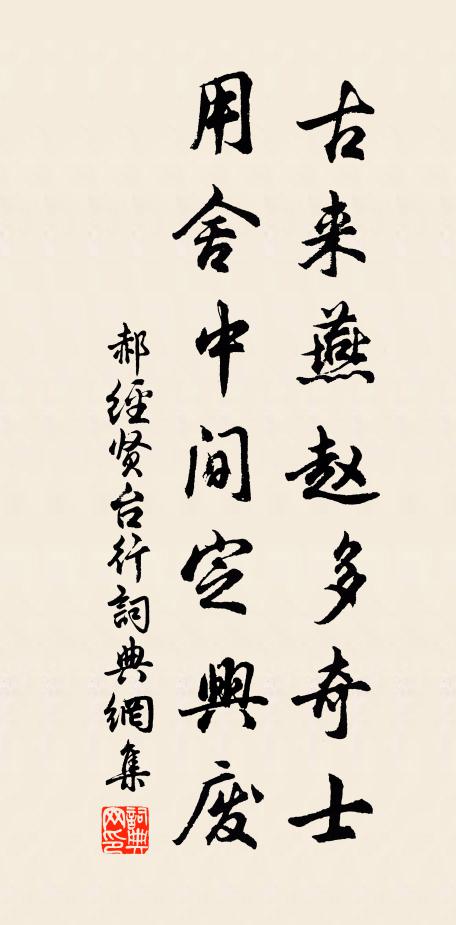 古来燕赵多奇士
用舍中间定興废
郝經贤台行詞典網集
詞典网印